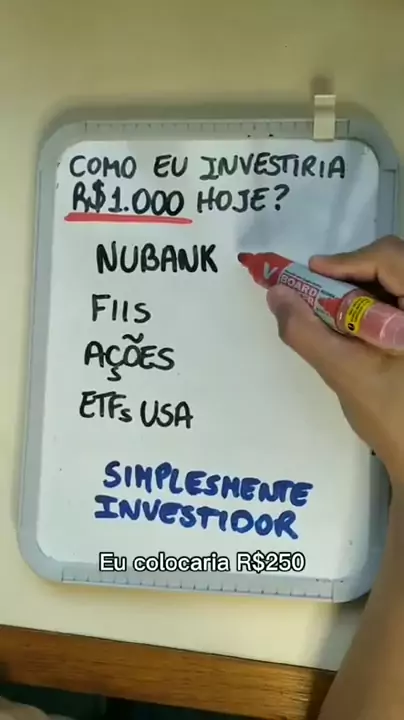 COMO EU INVESTIRIA
R$1.000 HOJE?
NUBANK
FIIS
AÇÕES
ETFs USA
SIMPLESMENTE
INVESTIDOR
Eu colocaria R$250
V
BOARD